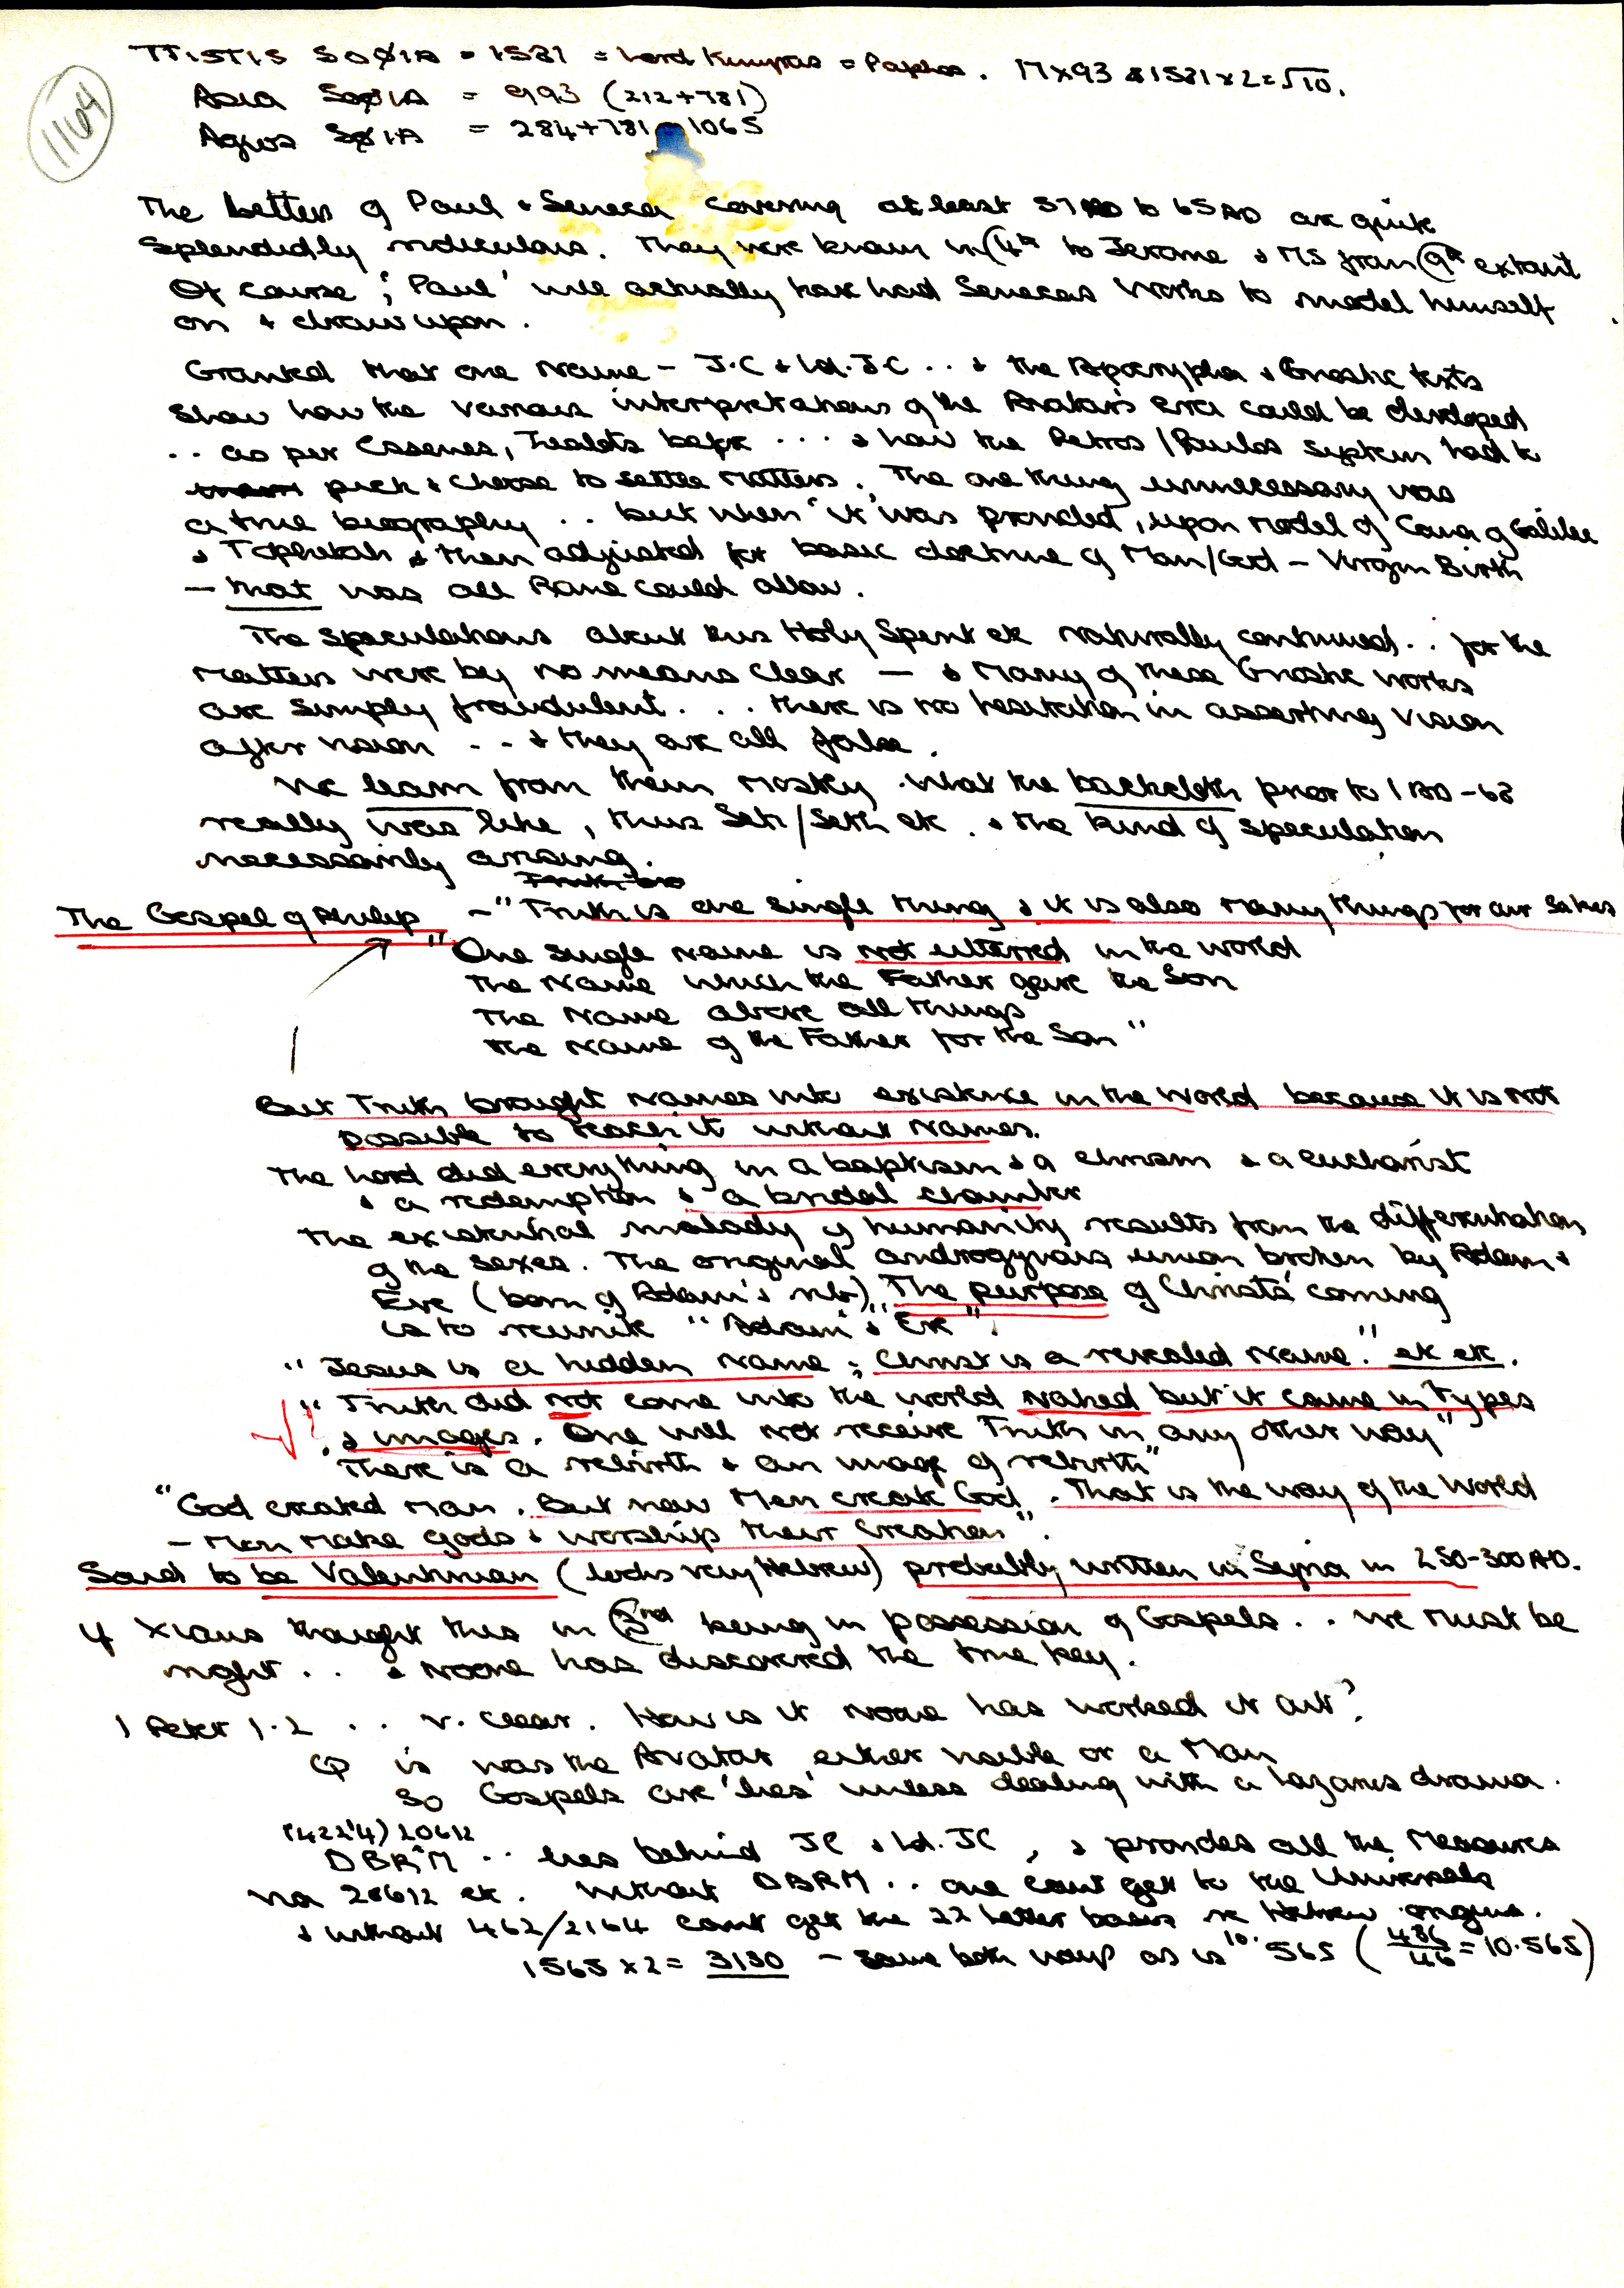 1164
ΠISTIS SOΦIA = 1581 = Lord Kinyras = Paphos. 17x93 & 1581x2=√10.
SOΦIA = 993 (212+781)
SOΦIA = 284+781=1065
The letters of Paul & Seneca covering at least 57AD to 65AD are quite
splendidly ridiculous. They were known in 4th to Jerome & MS from 9th extant
Of course, 'Paul' will actually have had Senecas works to model himself
on & draw upon.
Granted that one Name - J.C & Ld. J.C .. & the Apocrypha & Gnostic texts
show how the various interpretations of the Avatar's era could be developed
.. as per Essenes, Zealots before ... & how the Petros/Paulos system had to
pick & choose to settle matters. The one thing unnecessary was
a true biography .. but when 'it' was provided, upon model of Cana of Galilee
& Tophetah & then adjusted for basic doctrine of Man/God - Virgin Birth
- that was all Rome could allow.
The speculations about this Holy Spirit etc naturally continued .. for the
matters were by no means clear - & many of these Gnostic works
are simply fraudulent ... there is no hesitation in asserting vision
after vision .. & they are all false.
We learn from them mostly what the backcloth prior to 1AD-68
really was like, thus Seti/Seth etc. & the kind of speculation
necessarily arising.
The Gospel of Philip - "Truth is one single thing & it is also many things for our sakes
"One single name is not uttered in the world
The Name which the Father gave the Son
The Name above all things
the Name of the Father for the Son"
But Truth brought names into existence in the world because it is not
possible to teach it without names.
The Lord did everything in a baptism & a chrism & a eucharist
& a redemption & a bridal chamber
The existential malady of humanity results from the differentiation
of the sexes. The original androgynous union broken by Adam &
Eve (born of Adam's rib) "The purpose of Christs' coming
is to reunite "Adam & Eve".
"Jesus is a hidden name; Christ is a revealed name." etc etc.
"Truth did not come into the world naked but it came in types
& images. One will not receive Truth in any other way"
"There is a rebirth & an image of rebirth"
"God created man. But now Men create God. That is the way of the World
- Men make gods & worship their creation".
Said to be Valentinian (looks very Hebrew) probably written in Syria in 250-300AD.
If Xians thought this in 3rd being in possession of Gospels .. we must be
right .. & noone has discovered the true key.
1 Peter 1.2 .. v. clear. How is it noone has worked it out?
is was the Avatar either visible or a Man
So Gospels are 'lies' unless dealing with a Lazarus drama.
(422'4) 20612
DBRM .. lies behind JC & Ld. JC, & provides all the Measures
via 20612 etc. Without DBRM .. one cant get to the Universals
& without 462/2164 cant get the 22 letter basis re Hebrew origins.
1565 x 2 = 3130 - same both ways as is 10.565 (486/46 = 10.565)